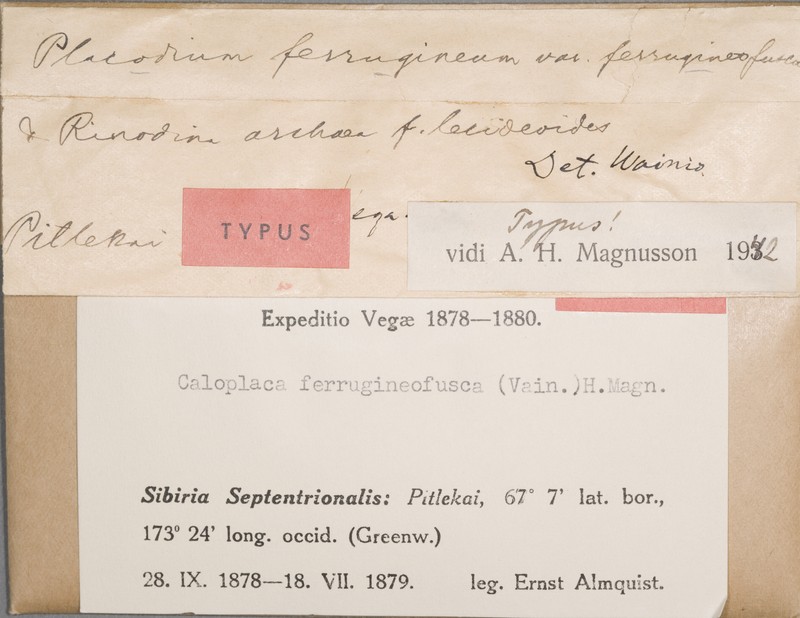 Placodium ferrugineum var. ferrugineofusca
& Rinodina archaea f. lecideoides
Det. Wainio.
Pitlekai
TYPUS
ega.
Typus!
vidi A. H. Magnusson 1942
Expeditio Vegæ 1878—1880.
Caloplaca ferrugineofusca (Vain.)H.Magn.
Sibiria Septentrionalis: Pitlekai, 67° 7' lat. bor.,
173° 24' long. occid. (Greenw.)
28. IX. 1878—18. VII. 1879. leg. Ernst Almquist.